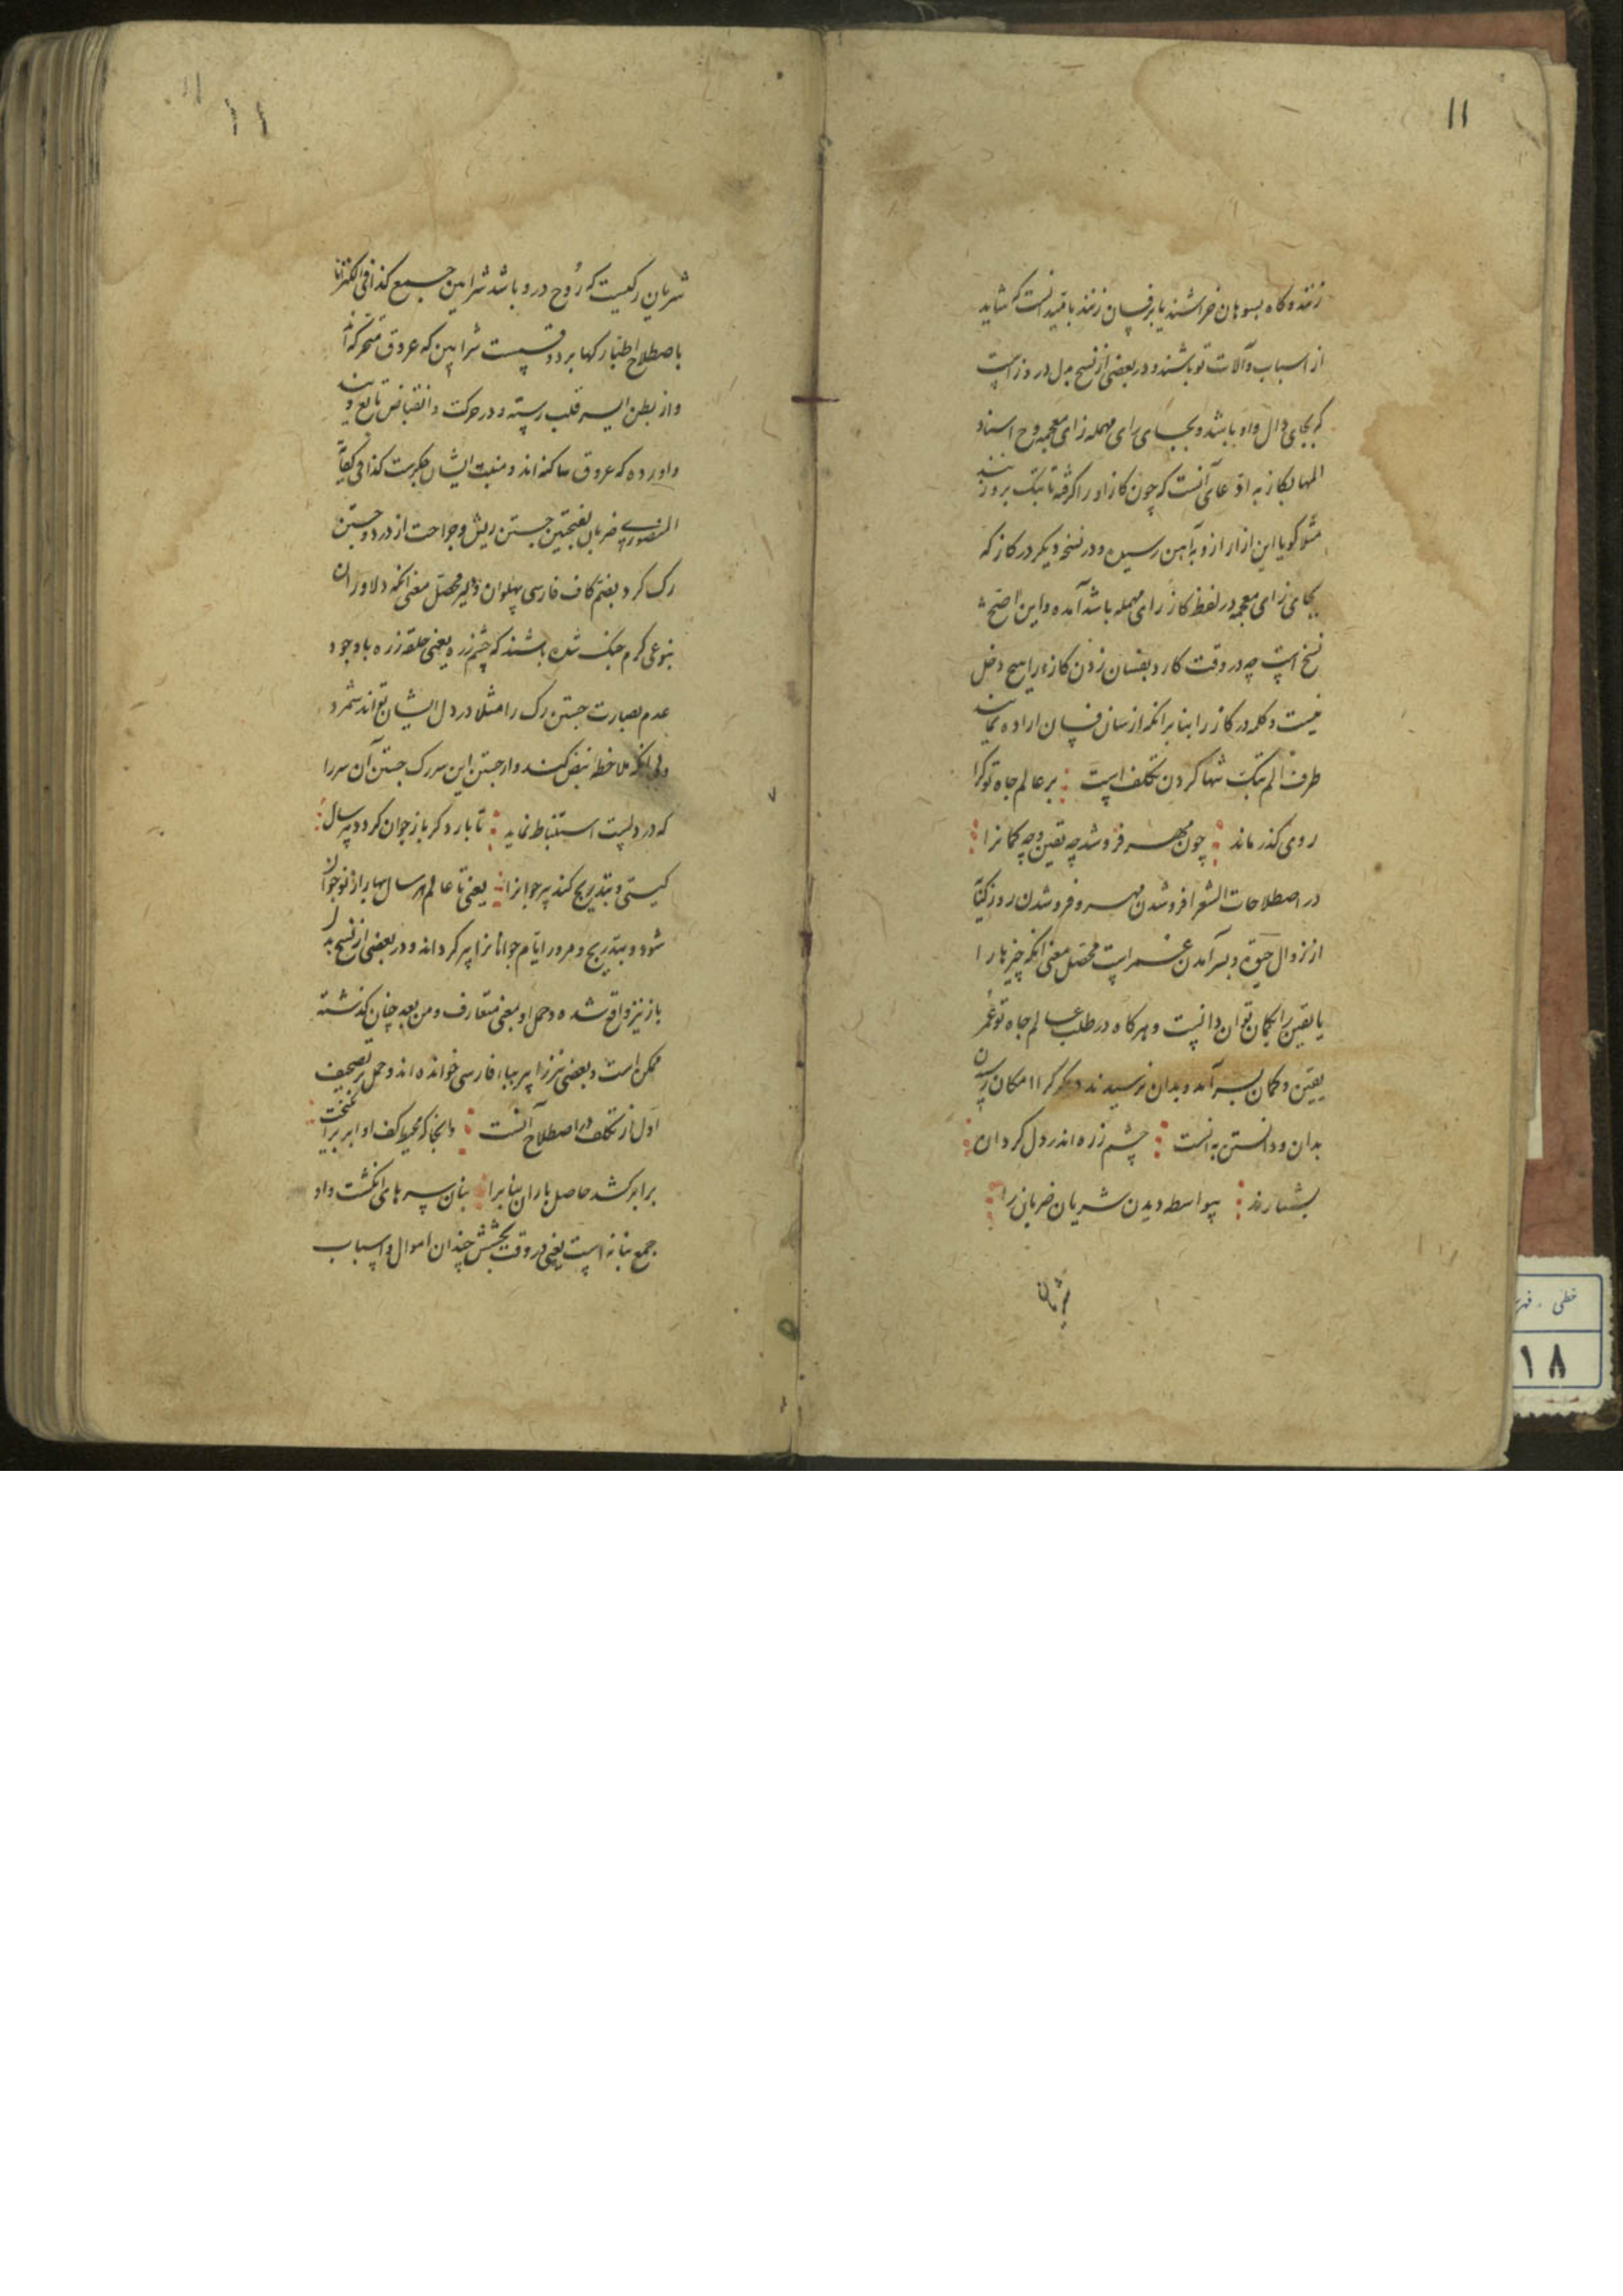 ۱۱
زنند و کاه بسوهان خراشند یا برفسان زنند باقید انست که شاید
از اسباب و آلات تو باشند و در بعضی از نسخ بدل در وز است
که بجای دال واو باشد و بجای رای مهمله زای معجمه وح اسناد
الم بکاز به ادعای آنست که چون کاز او را کرفته تا پتک برو زنند
مثلا کویا این ازار ازو بآهن رسیده و در نسخه دیکر در کاز که
بجای زای معجمه در لفظ کاز رای مهمله باشد آمده و این اصح
نسخ است چه در وقت کارد بفسان زدن کاز را هیچ دخل
نیست و کلمه در کاز را بنا بر انکه از سان فسان اراده نمایند
طرف الم پتک تنها کردن تکلف است : بر عالم جاه تو کرا
روی کذر ماند : چون مهر فرو شد چه یقین و چه کمانرا :
در اصطلاحات الشعرا فرو شدن مهر و فرو شدن روز کنایة
از زوال حیوة و بسر آمدن عمر است محصل معنی انکه چیزها را
یا یقین یا بکمان توان دانست و هر کاه در طلب عالم جاه تو عمر
یقین و کمان بسر آمد و بدان نرسیدند دیکر کرا امکان رسیدن
بدان و دانستن به انست : چشم زره اندر دل کردان :
بشمارند : بیواسطه دیدن شریان ضربانرا :
شریان
۱۱
شریان رکیست که روح درو باشد شرایین جمیع کذا فی الکنز اما
باصطلاح اطبا رکها بر دو قسمست شرایین که عروق متحرکه اند
و از بطن ایسر قلب رسته و در حرکت و انقباض تابع ویند
و اورده که عروق ساکنه اند و منبت ایشان جکرست کذا فی کفایة
المنصوری ضربان بفتحتین جستن ریش و جراحت از درد و جستن
رک کرد بضم کاف فارسی پهلوان و دلیر محصل معنی انکه دلاوران
بنوعی کرم جنک شده باشند که چشم زره یعنی حلقه زره باوجود
عدم بصارت جستن رک را مثلا در دل ایشان تواند شمرد
وبی انکه ملاحظه نبض کنند و از جستن این سر رک جستن آن سر را
که در دلست استنباط نماید : تا بار دکر باز جوان کردد هر سال :
کیتی و بتدریج کند پیر جوانرا : یعنی تا عالم هر سال بهار از نو جوان
شود و بتدریج و مرور ایام جوانانرا پیر کرداند و در بعضی از نسخ بدل
باز نیز واقع شده و حمل او بمعنی متعارف و من بعد چنان کذشته
ممکن است و بعضی نیز را پیر بباء فارسی خوانده اند و حمل بر تصحیف
اول از تکلف در اصطلاح آنست : وانجا که محیط کف او ابر برانکیخت :
برابر کشد حاصل باران بنانرا : بنان سرهای انکشت واو
جمع بنانه است یعنی در وقت بخشش چندان اموال و اسباب
خطی
۱۸